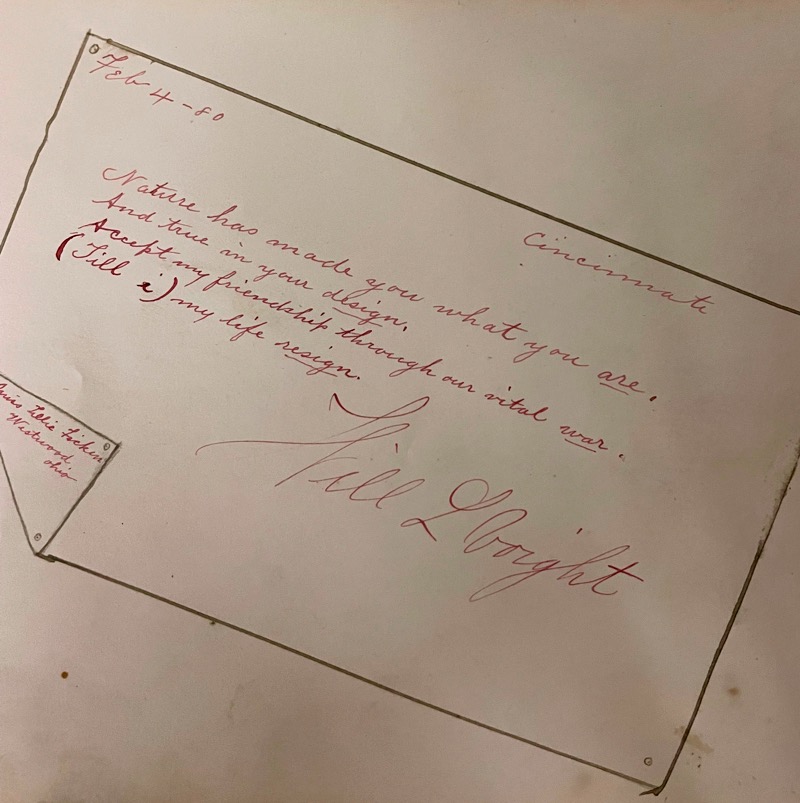 Feb 4 - 80
Cincinnati
Nature has made you what you are.
And true in your design.
Accept my friendship through our vital war.
(Till i) my life resign.
Will L Voight
Westwood
Ohio